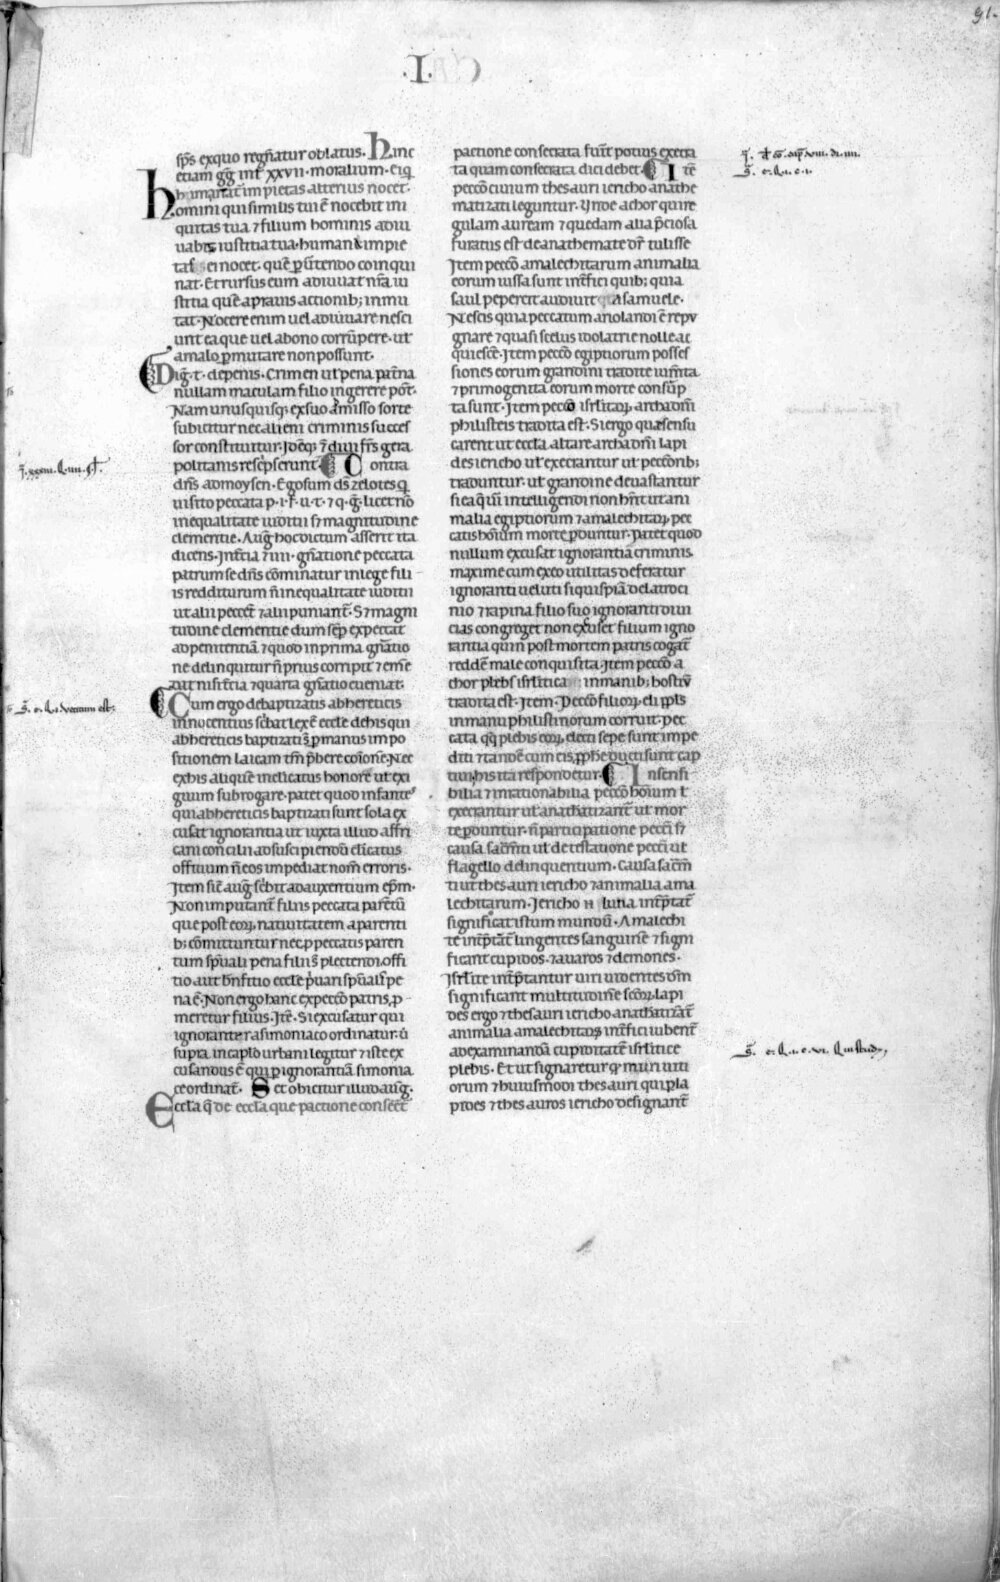 91.
.I.
sp̄s exquo regn̄atur oblatus. Hinc
etiam gḡ int̄ xxvii. moralium. eiq̄
humanitat̄ impietas alterius nocet.
Homini qui similis tui ē nocebit ini
quitas tua ⁊ filium hominis adiu
uabit iustitia tua. humana impie
tas ei nocet. quē p̄uertendo coinqui
nat. Et rursus eum adiuuat nr̄a iu
stitia quē a prauis actionib; inmu
tat. Nocere enim uel adiuuare nesci
unt ea que uel a bono corrūpere. ul̓
a malo ꝑmutare non possunt.
Dig̃. t̄. de penis. Crimen ul̓ pena pat̄na
nullam maculam filio ingerere pōt.
Nam unusquisq; ex suo amisso sorte
subicitur nec alieni criminis succes
sor constituitur. Idēq; ⁊ diui fr̄s gera
politanis resc̓pserunt. Contra
dn̄s ad moysen. Ego sum ds̄ zelotes q̄
uisito peccata p. i. f. u. t. ⁊ q. g̃. licet nō
inequalitate iuditii s; magnitudine
clementie. Aug̃ hoc dictum asserit ita
dicens. In t̄cia ⁊ iiii. gn̄atione peccata
patrum se dn̄s cōminatur in lege fili
is redditurum n̄ inequalitate iuditii
ut alii peccēt ⁊ alii puniant̄. S; magni
tudine clementie dum semp̄ expectat
ad penitentiā ⁊ quod in prima gn̄atio
ne delinquitur n̄ prius corripit ⁊ em̄e
aut nisi t̄cia ⁊ quarta gn̄atio eueniat.
Cum ergo de baptizatis ab hereticis
innocentius sc̓bat lexē eccl̄e de his qui
ab hereticis baptizatis ꝑ manus impo
sitionem laicam tm̄ p̓bere cōionē. Nec
ex his aliquē in clicatus honorē ul̓ exi
guum subrogare. patet quod infantes
qui ab hereticis baptizati sunt sola ex
cusat ignorantia ut iuxta illud affri
cani concilii ad suscipiendū clicatus
offitium n̄ eos impediat nom̄ erroris.
Item sic̄ aug̃ sc̓bit ad auxentium ep̄m.
Non imputant̄ filiis peccata parentū
que post eorꝝ natiuitatem a parenti
b; cōmittuntur nec ꝓ peccatis paren
tum sp̄uali pena filiis plectendi. offi
tio aut bn̄fitio eccl̄e p̓uari sp̄ualis pe
na ē. Non ergo hanc ex peccō patris, ꝓ
meretur filius. Itē. Si excusatur qui
ignoranter a simoniaco ordinatur. ū
supra in capl̄o urbani legitur ⁊ iste ex
cusandus ē qui ꝑ ignorantiā simonia
ce ordinat̄. Set obicitur illud aug̃.
Eccl̄a q̄ de eccl̄a que pactione consec̄t̄
pactione consecrata fuīt potius execra
ta quam consecrata dici debet. Itē
peccō ciuium thesauri iericho anathe
matizati leguntur. Unde achor qui re
gulam auream ⁊ quedam alia p̄ciosa
furatus est de anathemate dr̄ tulisse
Item peccō amalechitarum animalia
eorum iussa sunt int̄fici quib; quia
saul pepercit audiuit a samuele.
Nescis quia peccatum ariolandi ē repu
gnare ⁊ quasi scelus idolatrie nolle ac
quiesce. Item peccō egiptiorum posses
siones eorum grandini tradite iumt̄a
⁊ primogenita eorum morte consūp
ta sunt. Item peccō isrl̄itarꝝ. archa dn̄i
philisteis tradita est. Si ergo quę sensu
carent ut eccl̄a. altare archa dn̄i lapi
des iericho ul̓ execrantur ul̓ peccōnb;
traduntur. ul̓ grandine deuastantur
si ea q̄ uim intelligendi non hn̄t ut ani
malia egiptiorum ⁊ amalechitarꝝ pec
catis hoīum morte ꝑduntur. Patet quod
nullum excusat ignorantiā criminis
maxime cum ex eo utilitas deferatur
ignoranti ueluti si quispiā de latroci
nio ⁊ rapina filio suo ignoranti diui
cias congreget non excuset filium igno
rantia quin post mortem patris cogat̄
reddē male conquisita. Item peccō a
chor plebs isrl̄itica in manib; hostiū
tradita est. Item. Peccō filiorꝝ eli ppl̄s
in manu philistinorum corruit. pec
cata qq̨ plebis eorꝝ electi sepe sunt impe
diti ⁊ tandē cum eis, ꝓph̄e ducti sunt cap
tiui. his ita respondetur. Insensi
bilia ⁊ irrationabilia peccō hoīum ł
execrantur ul̓ anathatizant̄ ut mor
te ꝑduntur. n̄ participatione pecc̄i s;
causa sacm̄ti ul̓ detestatione pecc̄i ut
flagello delinquentium. Causa sacm̄
ti ut thesauri iericho ⁊ animalia ama
lechitarum. Iericho n̄ luna int̄ptat̄
significat istum mundū. Amalechi
te int̄ptat̄ lingentes sanguinē ⁊ signi
ficant cupidos. ⁊ auaros ⁊ demones.
Isrl̄ite int̄ptantur uiri uidentes dm̄
significant multitudinē sc̄orꝝ. lapi
des ergo ⁊ thesauri iericho anathatizāt̄
animalia amalechitarꝝ int̄fici iubent̄
ad examinandā cupiditatē isrl̄itice
plebis. Et ut signaretur q̓ muri uiti
orum ⁊ huiusmodi thesauri qui pla
pides ⁊ thesauros iericho designant̄